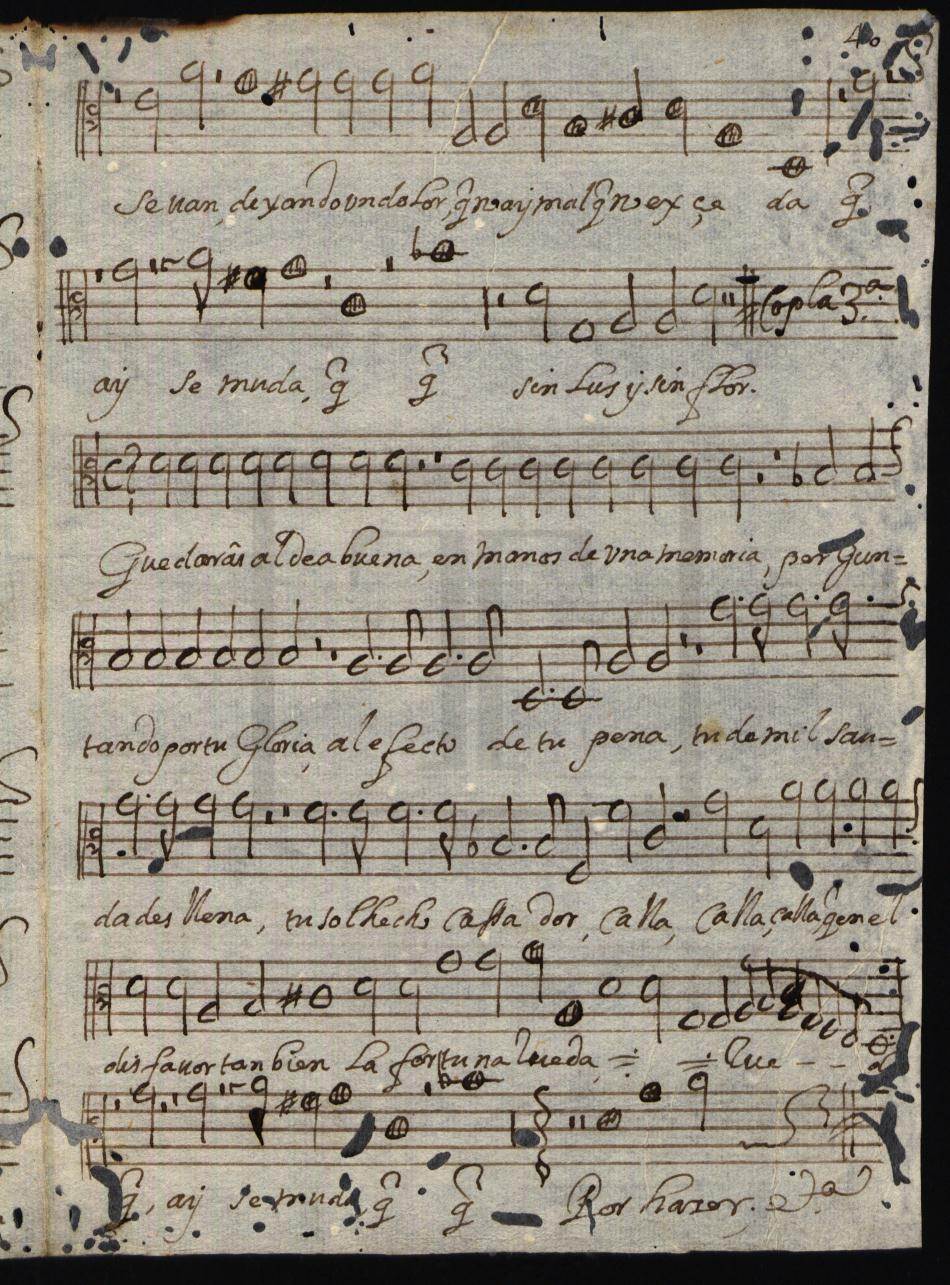 4o
se uan, dexando un dolor, q̃ no ay mal q̃ no ex ça da q̃
Copla 3.ª
ay se muda, q̃ q̃ sin lus y sin flor.
Quedarâs aldea buena, en manos de una memoria, pregun=
tando por tu Gloria, al efecto de tu pena, tu de mil sau=
dades llena, tu sol hecho Casta dor, Calla, Calla, calla, q̃ en el
disfauor tan bien la fortuna Rueda, =: =: Rue - - da
q̃, ay se muda q̃ q̃ Por hazer, &.ª